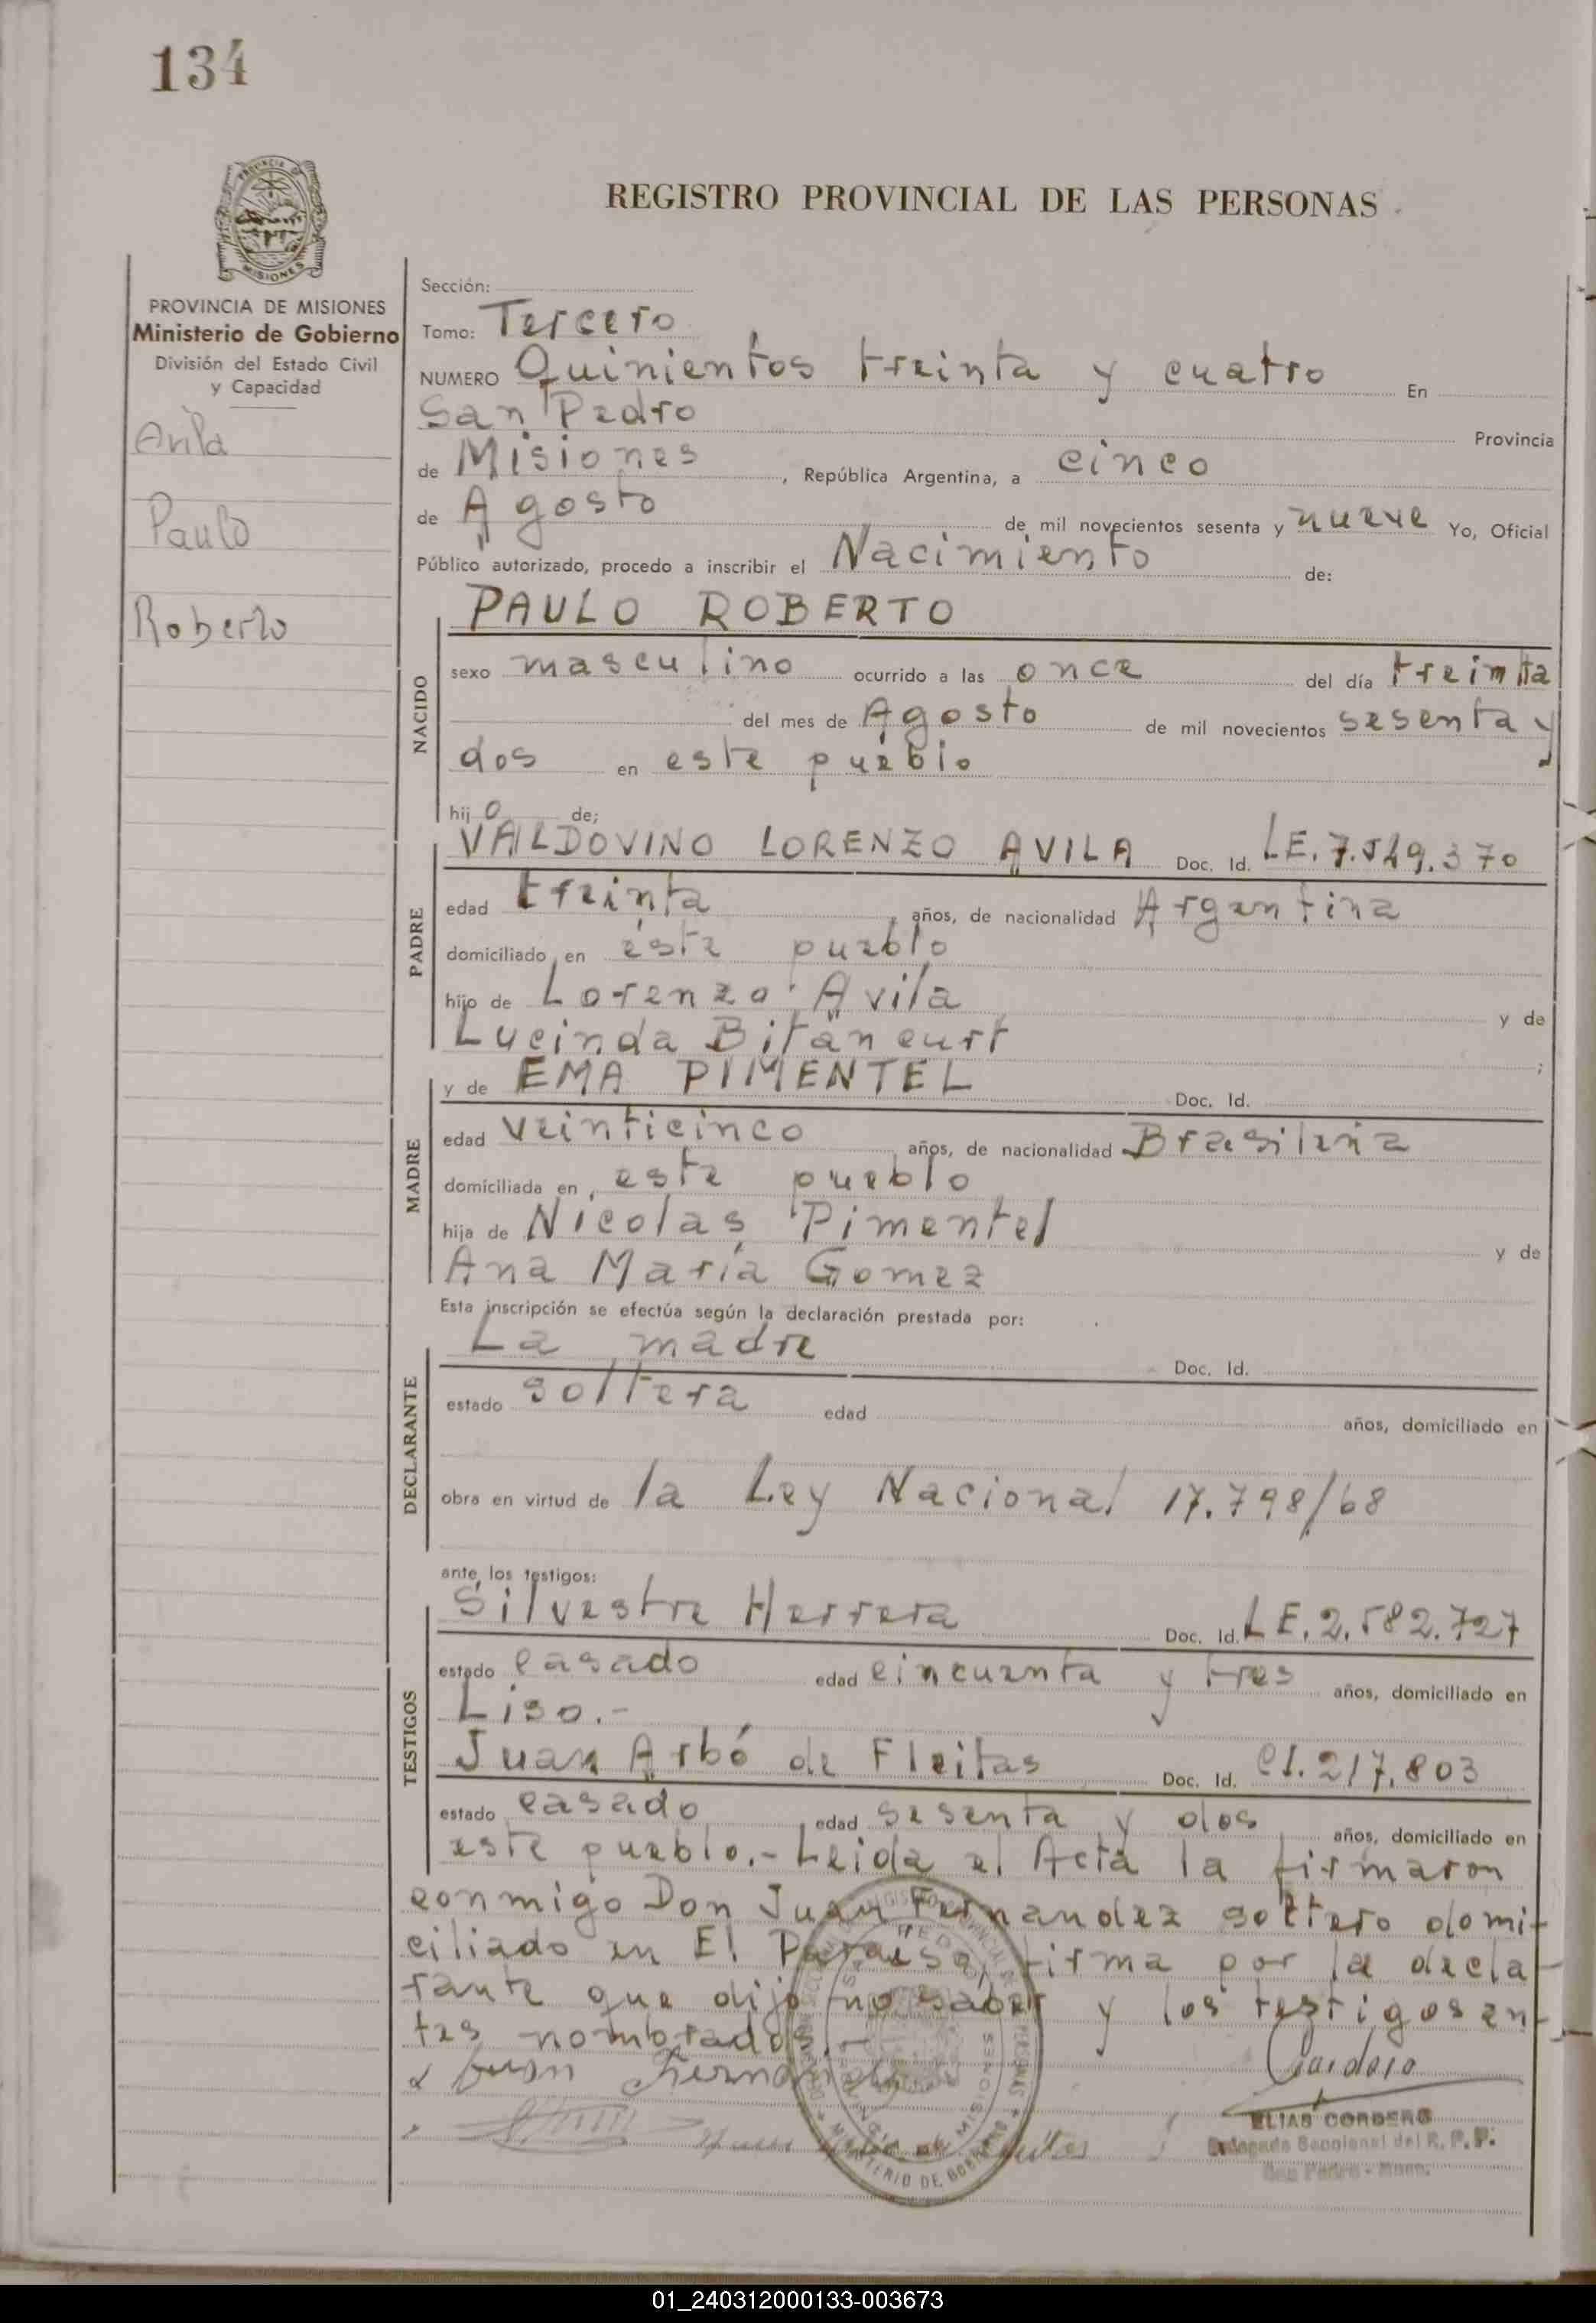 134
PROVINCIA DE MISIONES
Ministerio de Gobierno
División del Estado Civil
y Capacidad
Avila
Paulo
Roberto
REGISTRO PROVINCIAL DE LAS PERSONAS
Sección:
Tomo: Tercero
NUMERO Quinientos treinta y cuatro En
San Pedro Provincia
de Misiones, República Argentina, a cinco
de Agosto de mil novecientos sesenta y nueve Yo, Oficial
Público autorizado, procedo a inscribir el Nacimiento de:
NACIDO
PAULO ROBERTO
sexo masculino ocurrido a las once del día treinta
del mes de Agosto de mil novecientos sesenta y
dos en este pueblo
hijo de;
PADRE
VALDOVINO LORENZO AVILA Doc. Id. LE. 7.549.370
edad treinta años, de nacionalidad Argentina
domiciliado en éste pueblo
hijo de Lorenzo Avila y de
Lucinda Bitancurt ;
MADRE
y de EMA PIMENTEL Doc. Id.
edad veinticinco años, de nacionalidad Brasileña
domiciliada en este pueblo
hija de Nicolas Pimentel y de
Ana María Gomez
Esta inscripción se efectúa según la declaración prestada por:
DECLARANTE
La madre Doc. Id.
estado soltera edad años, domiciliado en
obra en virtud de la Ley Nacional 17.798/68
ante los testigos:
TESTIGOS
Silvestre Herrera Doc. Id. LE. 2.582.727
estado casado edad cincuenta y tres años, domiciliado en
Liso.-
Juan Arbó de Fleitas Doc. Id. CI. 217.803
estado casado edad sesenta y dos años, domiciliado en
este pueblo.- Leida el Acta la firmaron
conmigo Don Juan Fernandez soltero domi-
ciliado en El Paraiso, firma por la decla-
rante que dijo no saber y los testigos an-
tes nombrados.-
Juan Fernandez
ELIAS CORDERO
Delegado Seccional del R. P. P.
San Pedro - Mnes.
MINISTERIO DE GOBIERNO
MISIONES
01_240312000133-003673